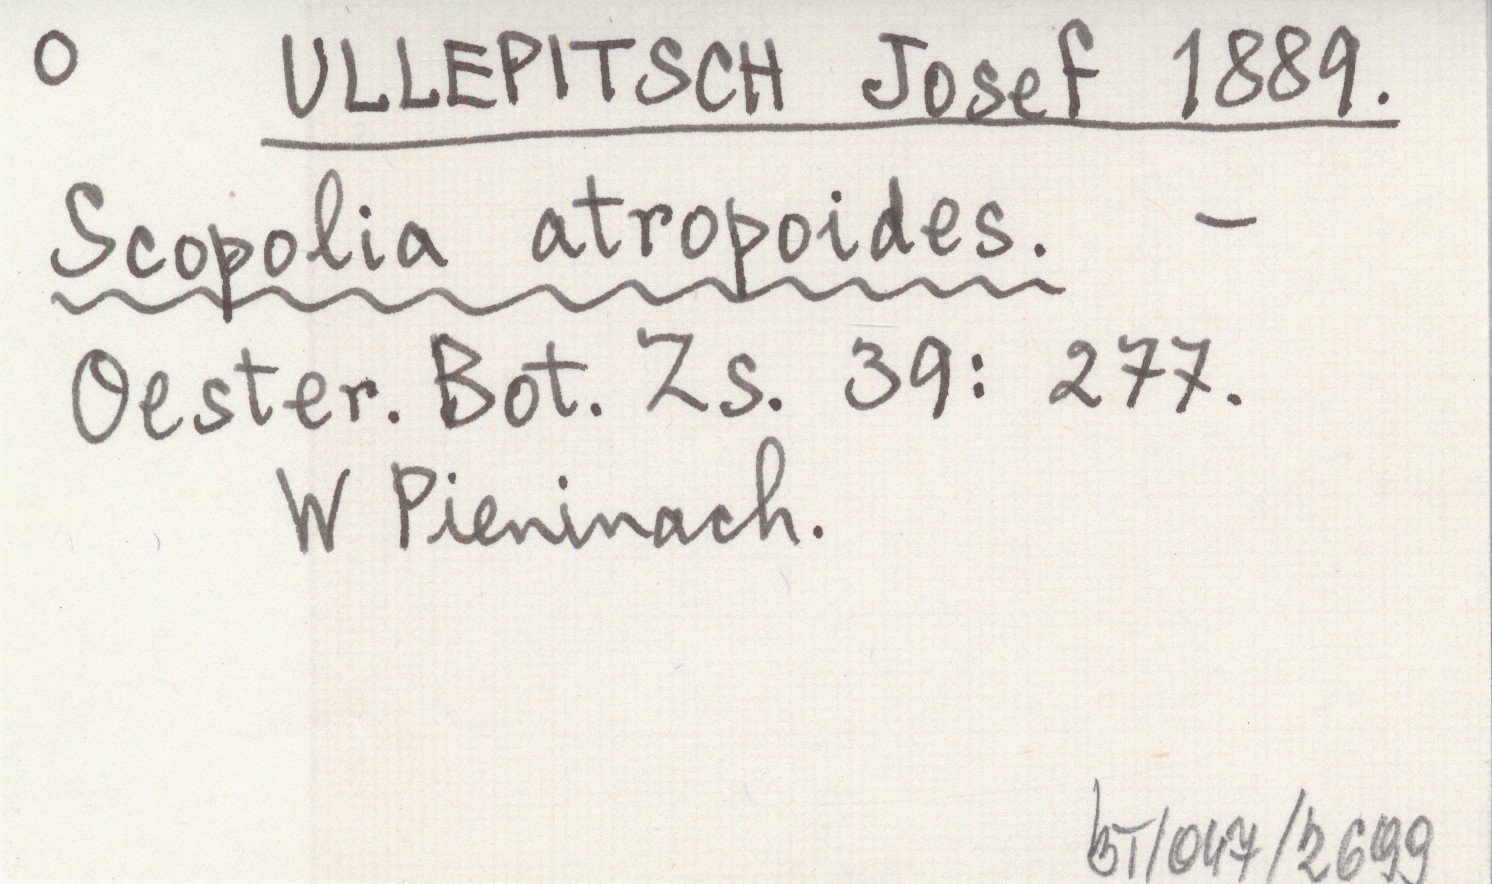 O ULLEPITSCH Josef 1889.
Scopolia atropoides. –
Oester. Bot. Zs. 39: 277.
W Pieninach.
BT/047/2699